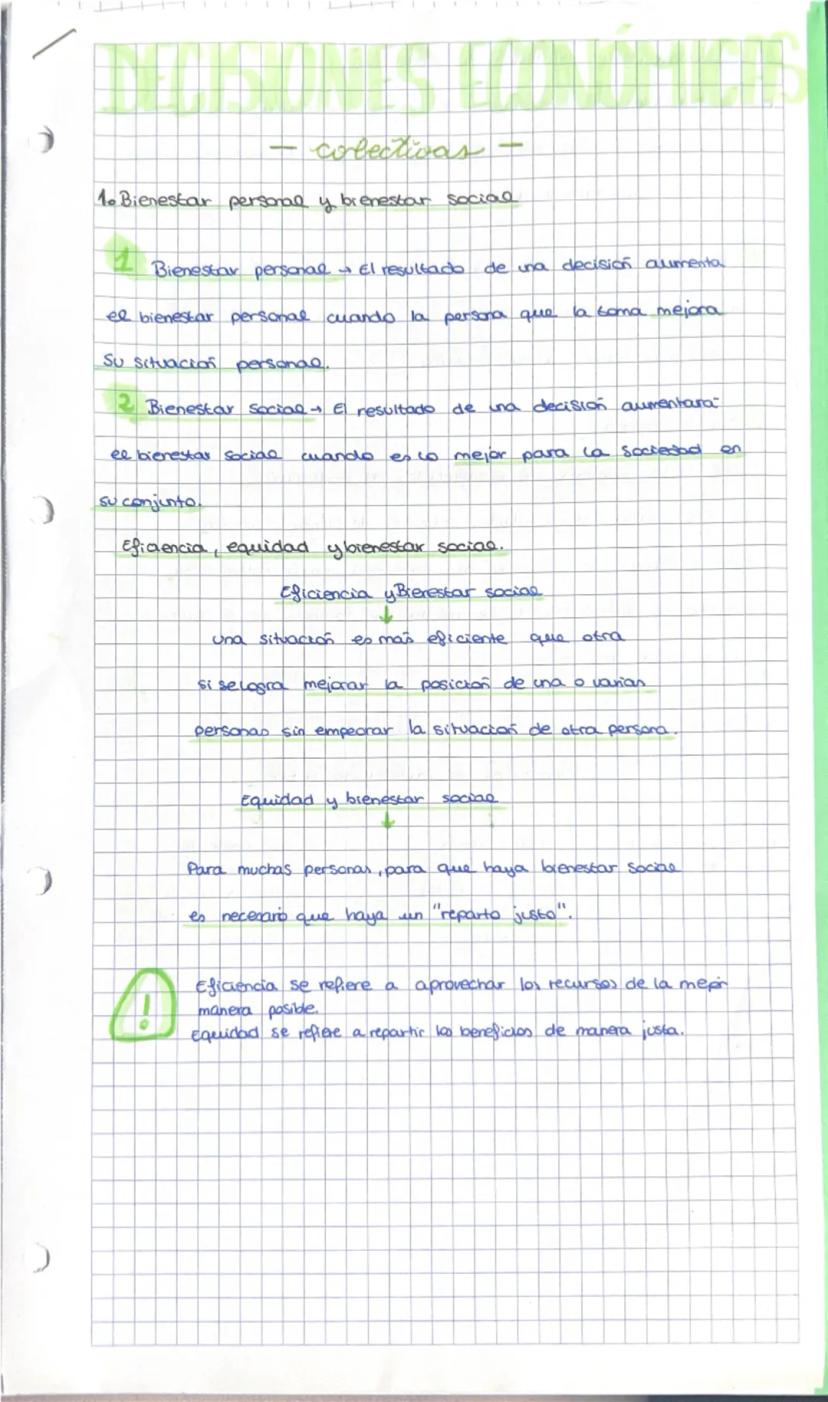 DECISIONES ECONÓMICAS
- colectivas -
1. Bienestar personal y bienestar social
1 Bienestar personal → El resultado de una decisión aumenta
el bienestar personal cuando la persona que la toma mejora
su situación personal.
2 Bienestar social → El resultado de una decisión aumentará
el bienestar social cuando es lo mejor para la sociedad en
su conjunto.
Eficiencia, equidad y bienestar social.
Eficiencia y Bienestar social
↓
una situación es más eficiente que otra
si se logra mejorar la posición de una o varias
personas sin empeorar la situación de otra persona.
Equidad y bienestar social
↓
Para muchas personas, para que haya bienestar social
es necesario que haya un "reparto justo".
! Eficiencia se refiere a aprovechar los recursos de la mejor
manera posible.
Equidad se refiere a repartir los beneficios de manera justa.